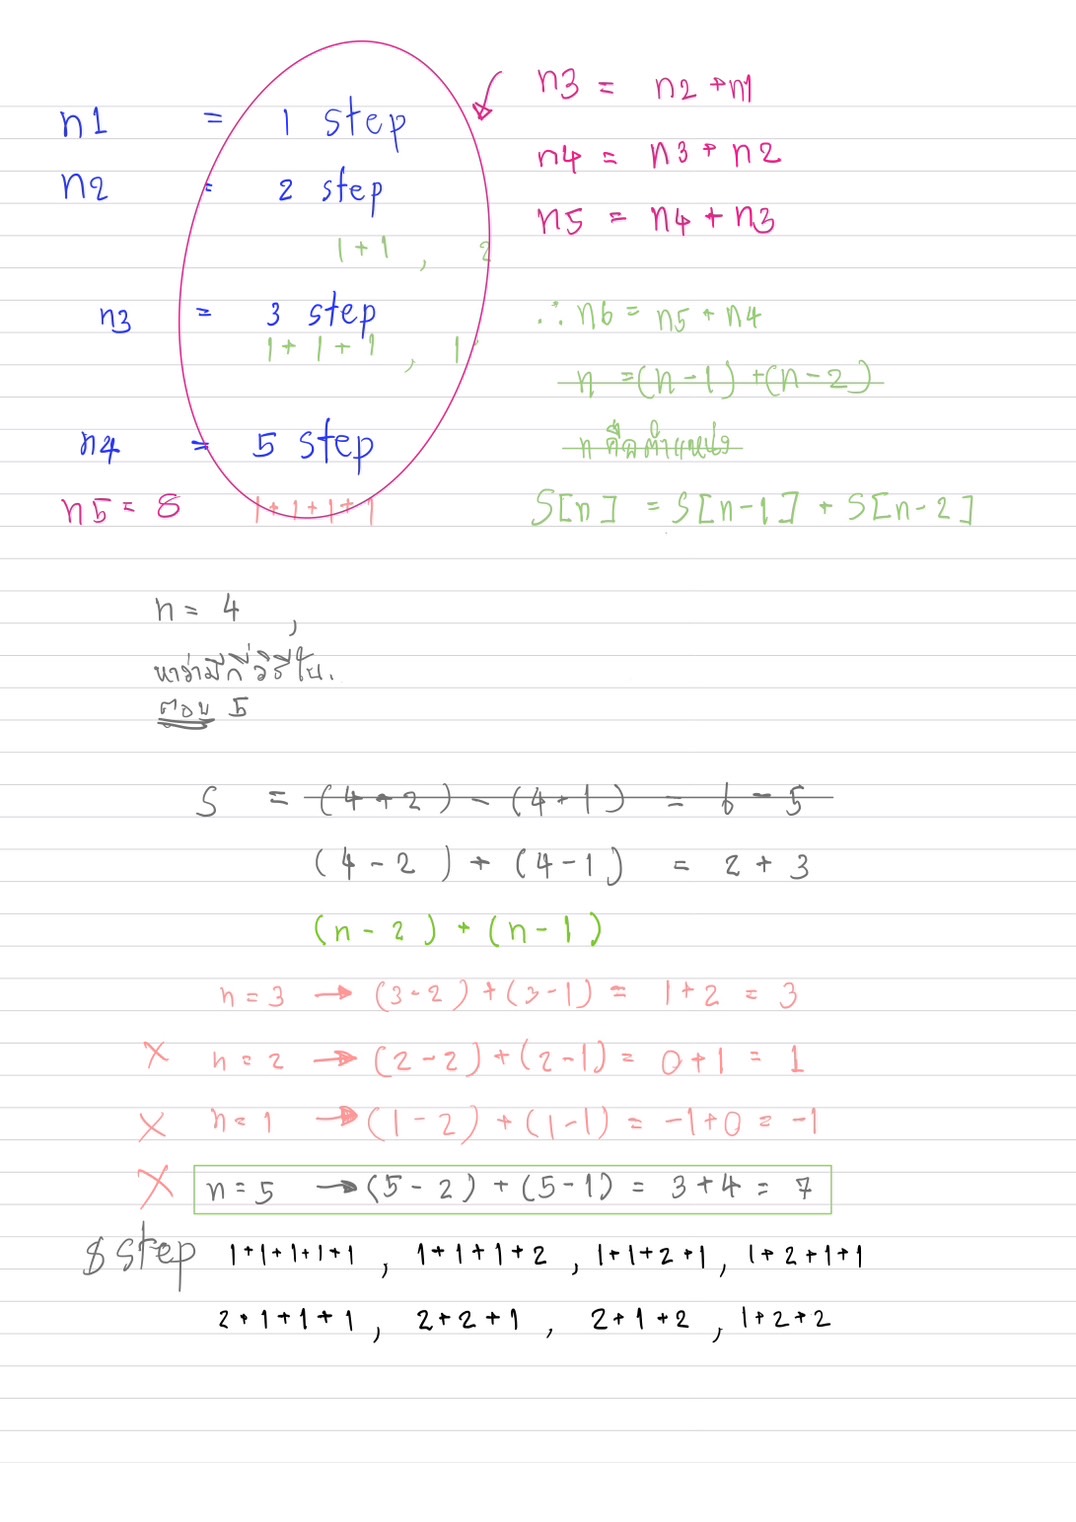 n1 = 1 step
n2 = 2 step
1+1 , 2
n3 = 3 step
1+1+1 , 1
n4 = 5 step
n5 = 8 1+1+1+1
n3 = n2+n1
n4 = n3+n2
n5 = n4+n3
∴ n6 = n5+n4
n =(n-1)+(n-2)
n คือตำแหน่ง
S[n] = S[n-1] + S[n-2]
n = 4 ,
หาว่ามีกี่วิธี
ตอบ 5
S = (4+2) - (4+1) = 6 - 5
(4-2) + (4-1) = 2 + 3
(n-2) + (n-1)
n=3 → (3-2)+(3-1) = 1+2 = 3
× n=2 → (2-2)+(2-1) = 0+1 = 1
× n=1 → (1-2)+(1-1) = -1+0 = -1
× n=5 → (5-2)+(5-1) = 3+4 = 7
8 step 1+1+1+1+1 , 1+1+1+2 , 1+1+2+1 , 1+2+1+1
2+1+1+1 , 2+2+1 , 2+1+2 , 1+2+2